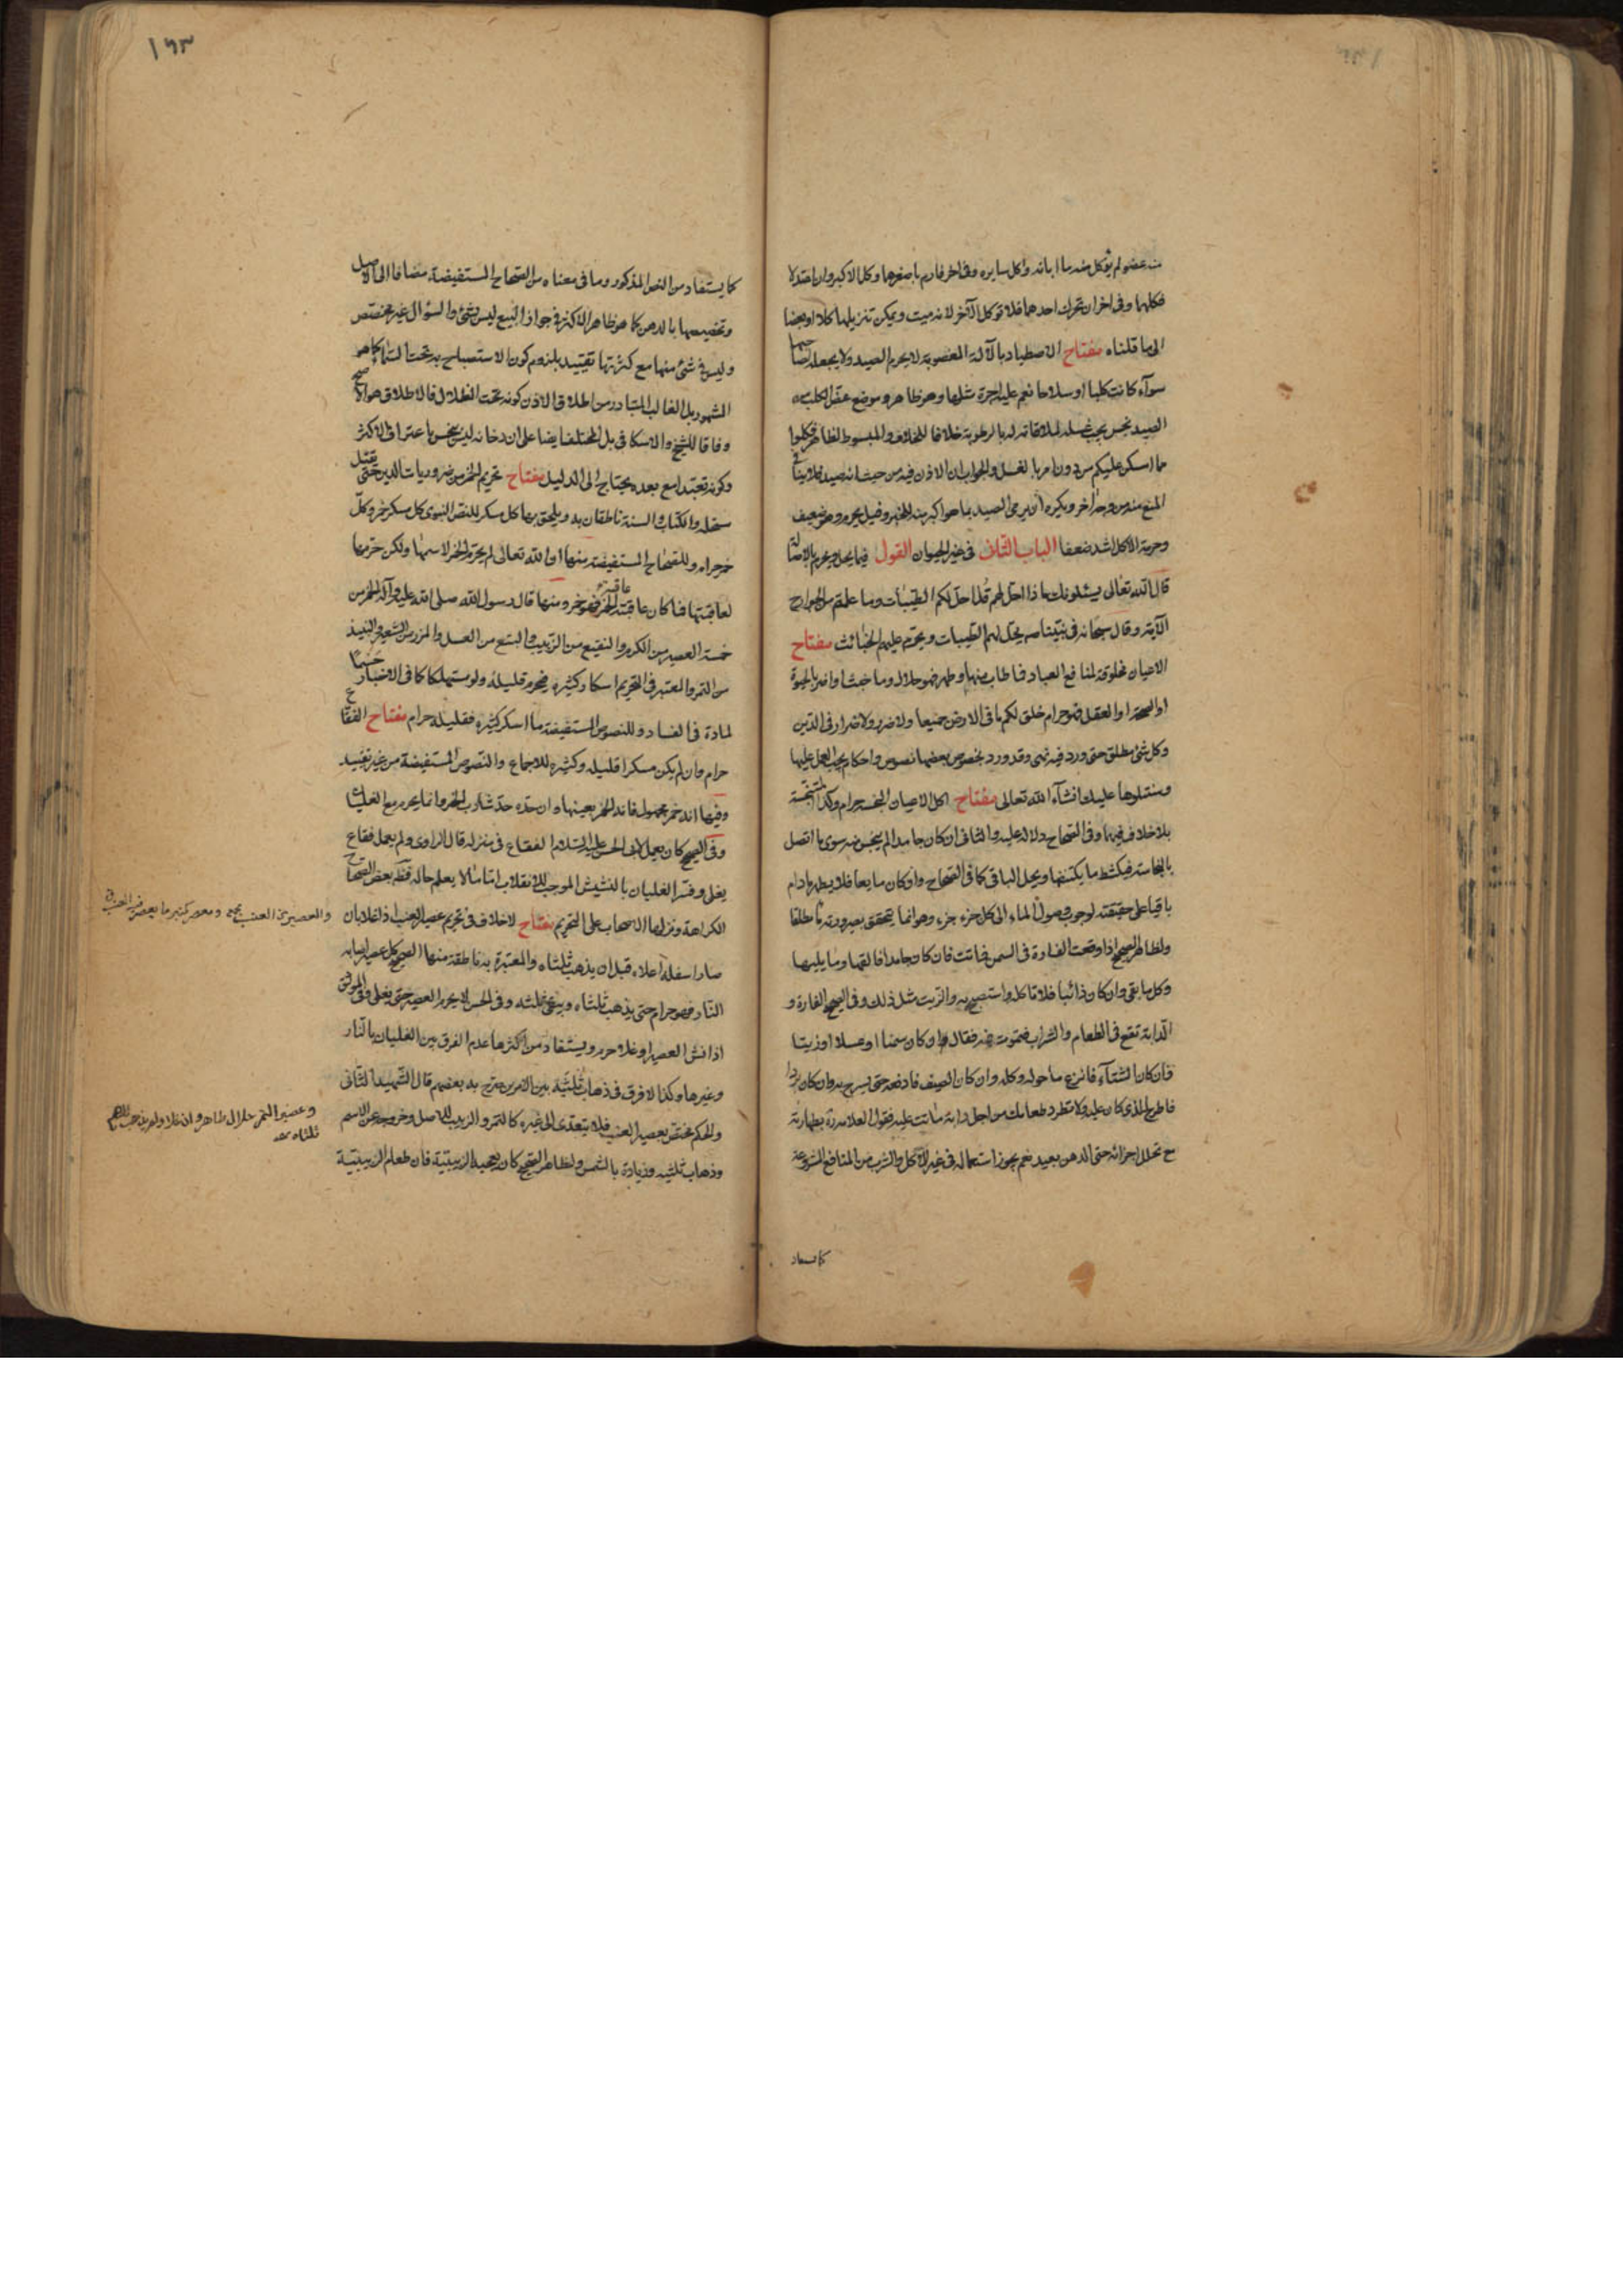 منه عضو لم يؤكل منه ما ابانه واكل سايره وفى اخر فارم باصغرهما وكل الاكبر وان اعتدلا
فكلهما وفى اخر ان تحرك احدهما فلا تؤكل الآخر لانه ميت ويمكن تنزيلها كلا او بعضا
الى ما قلناه مفتاح الاصطياد بالآلة المغصوبة لا يحرم الصيد ولا يجعله لصاحبها
سوآء كانت كلبا او سلاحا نعم عليه اجرة مثلها وهو ظاهر وموضع عض الكلب من
الصيد نجس يجب غسله لملاقاته له بالرطوبة خلافا للخلاف والمبسوط لظاهر فكلوا
مما امسكن عليكم من دون امر بالغسل والجواب ان الاذن فيه من حيث انه صيد فلا ينافى
المنع منه من وجه آخر ويكره ان يرمى الصيد بما هو اكبر منه للخبر وقيل يحرم وهو ضعيف
وحرمة الاكل اشد ضعفا الباب الثانى فى غير الحيوان القول فيما يحل ويحرم بالاصالة
قال الله تعالى يسئلونك ماذا احل لهم قل احل لكم الطيبات وما علمتم من الجوارح
الآية وقال سبحانه فى نبينا ص يحل لهم الطيبات ويحرم عليهم الخبائث مفتاح
الاعيان مخلوقة لمنافع العباد فما طاب منها وطهر فهو حلال وما خبث او اضر بالحيوة
او الصحة او العقل فهو حرام خلق لكم ما فى الارض جميعا ولا ضرر ولا ضرار فى الدين
وكل شئ مطلق حتى ورد فيه نهى وقد ورد بخصوص بعضها نصوص واحكام يجب العمل عليها
وسنتلوها عليك انشآء الله تعالى مفتاح اكل الاعيان النجسة حرام وكذا المتنجسة
بلا خلاف فيهما وفى الصحاح دلالة عليه والثانى ان كان جامدا لم ينجس منه سوى ما اتصل
بالنجاسة فيكشط ما يكتنفها ويحل الباقى كما فى الصحاح وان كان مايعا فلا يطهر ما دام
باقيا على حقيقته لوجوب وصول الماء الى كل جزء جزء وهو انما يتحقق بصيرورته ماء مطلقا
ولظاهر الصحيح اذا وقعت الفارة فى السمن فماتت فان كان جامدا فالقها وما يليها
وكل ما بقى وان كان ذائبا فلا تاكله واستصبح به والزيت مثل ذلك وفى الصحيح الفارة و
الدابة تقع فى الطعام والشراب فتموت فيه فقال وان كان سمنا او عسلا او زيتا
فان كان الشتآء فانزع ما حوله وكله وان كان الصيف فادفعه حتى يسرج به وان كان بردا
فاطرح الذى كان عليه ولا تطرد طعامك من اجل دابة ماتت عليه فقول العلامة ره بطهارته
ح تحلل اجزائه حتى الدهن بعيد نعم يجوز استعماله فى غير الاكل والشرب من المنافع المشروعة
كما يستفاد
۱۶۳
كما يستفاد من النص المذكور وما فى معناه من الصحاح المستفيضة مضافا الى الاصل
وتخصيصها بالدهن كما هو ظاهر الاكثر فى جواز البيع ليس بشئ والسؤال غير مخصص
وليس فى شئ منها مع كثرتها تقييد بلزوم كون الاستصباح به تحت السماء كما هو
المشهور بل الغالب المتبادر من اطلاق الاذن كونه تحت الظلال فالاطلاق هو الاصح
وفاقا للشيخ والاسكافى بل المختلف ايضا على ان دخانه ليس بنجس باعتراف الاكثر
وكونه تعبدا مع بعده يحتاج الى الدليل مفتاح تحريم الخمر من ضروريات الدين حتى يقتل
مستحله والكتاب والسنة ناطقان به ويلحق بها كل مسكر للنص النبوى كل مسكر خمر وكل
خمر حرام وللصحاح المستفيضة منها ان الله تعالى لم يحرم الخمر لاسمها ولكن حرمها
لعاقبتها فما كان عاقبته عاقبة الخمر فهو خمر ومنها قال رسول الله صلى الله عليه وآله الخمر من
خمسة العصير من الكرم والنقيع من الزبيب والبتع من العسل والمزر من الشعير والنبيذ
من التمر والمعتبر فى التحريم اسكار كثيره فيحرم قليله ولو مستهلكا كما فى الاخبار حسما
لمادة الفساد وللنصوص المستفيضة ما اسكر كثيره فقليله حرام مفتاح الفقاع
حرام وان لم يكن مسكرا قليله وكثيره للاجماع والنصوص المستفيضة من غير تقييد
وفيها انه خمر مجهول فانه الخمر بعينها وان حده حد شارب الخمر وانما يحرم مع الغليان
وفى الصحيح كان يعمل لابى الحسن عليه السلام الفقاع فى منزله قال الراوى ولم يعمل فقاع
يغلى وفسر الغليان بالنشيش الموجب للانقلاب اما ما لا يعلم حاله فظاهر بعض الصحاح
الكراهة ونزلها الاصحاب على التحريم مفتاح لا خلاف فى تحريم عصير العنب اذا غلا بان
صار اسفله اعلاه قبل ان يذهب ثلثاه والمعتبرة به ناطقة منها الصحيح كل عصير اصابه
النار فهو حرام حتى يذهب ثلثاه ويبقى ثلثه وفى الحسن لا يحرم العصير حتى يغلى وفى الموثق
اذا نش العصير او غلا حرم ويستفاد من اكثرها عدم الفرق بين الغليان بالنار
وغيرها وكذا لا فرق فى ذهاب ثلثيه بين الامرين صرح به بعضهم قال الشهيد الثانى
والحكم مختص بعصير العنب فلا يتعدى الى غيره كالتمر والزبيب للاصل وخروجه عن الاسم
وذهاب ثلثيه وزيادة بالشمس ولظاهر الصحيح كان يعجبه الزبيبية فان طعام الزبيبية
والعصير من العنب
وعصير التمر حلال طاهر وان غلا ولم يذهب
ثلثاه